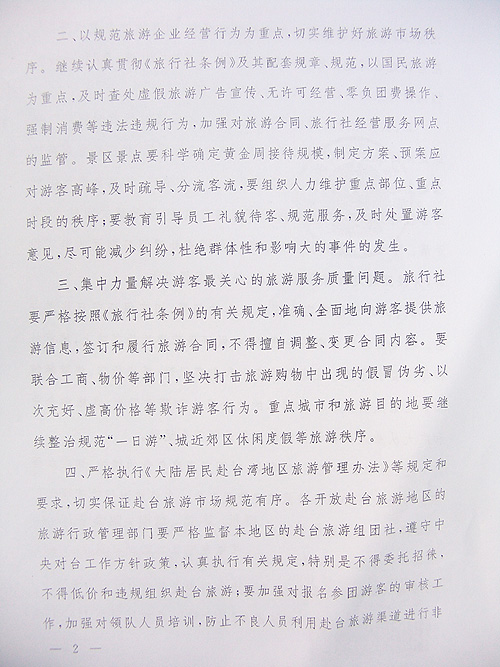 二、以规范旅游企业经营行为为重点,切实维护好旅游市场秩
序。继续认真贯彻《旅行社条例》及其配套规章、规范,以国民旅游
为重点,及时查处虚假旅游广告宣传、无许可经营、零负团费操作、
强制消费等违法违规行为,加强对旅游合同、旅行社经营服务网点
的监管。景区景点要科学确定黄金周接待规模,制定方案、预案应
对游客高峰,及时疏导、分流客流,要组织人力维护重点部位、重点
时段的秩序;要教育引导员工礼貌待客、规范服务,及时处置游客
意见,尽可能减少纠纷,杜绝群体性和影响大的事件的发生。
三、集中力量解决游客最关心的旅游服务质量问题。旅行社
要严格按照《旅行社条例》的有关规定,准确、全面地向游客提供旅
游信息,签订和履行旅游合同,不得擅自调整、变更合同内容。要
联合工商、物价等部门,坚决打击旅游购物中出现的假冒伪劣、以
次充好、虚高价格等欺诈游客行为。重点城市和旅游目的地要继
续整治规范“一日游”、城近郊区休闲度假等旅游秩序。
四、严格执行《大陆居民赴台湾地区旅游管理办法》等规定和
要求,切实保证赴台旅游市场规范有序。各开放赴台旅游地区的
旅游行政管理部门要严格监督本地区的赴台旅游组团社,遵守中
央对台工作方针政策,认真执行有关规定,特别是不得委托招徕,
不得低价和违规组织赴台旅游;要加强对报名参团游客的审核工
作,加强对领队人员培训,防止不良人员利用赴台旅游渠道进行非
— 2 —